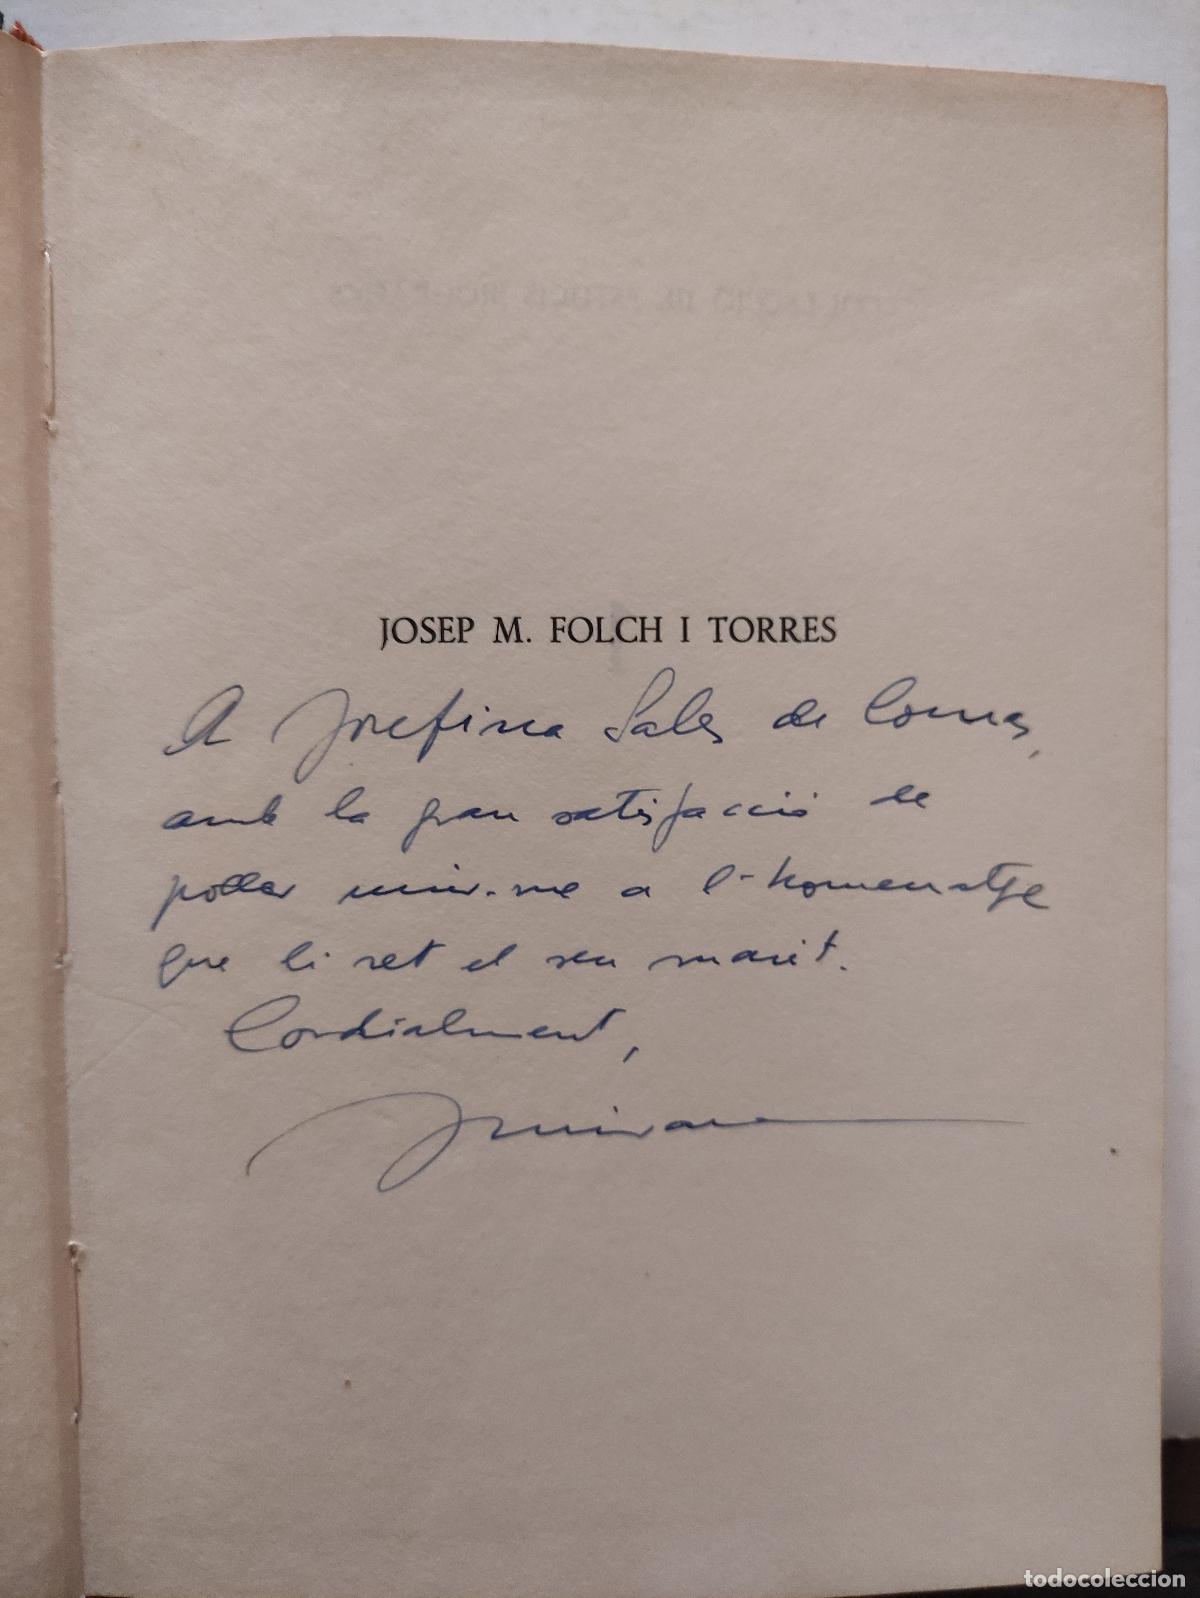 JOSEP M. FOLCH I TORRES
A Josefina Sales de Comas,
amb la gran satisfacció de
poder unir-me a l'homenatge
que li ret el seu marit.
Cordialment,
todocoleccion